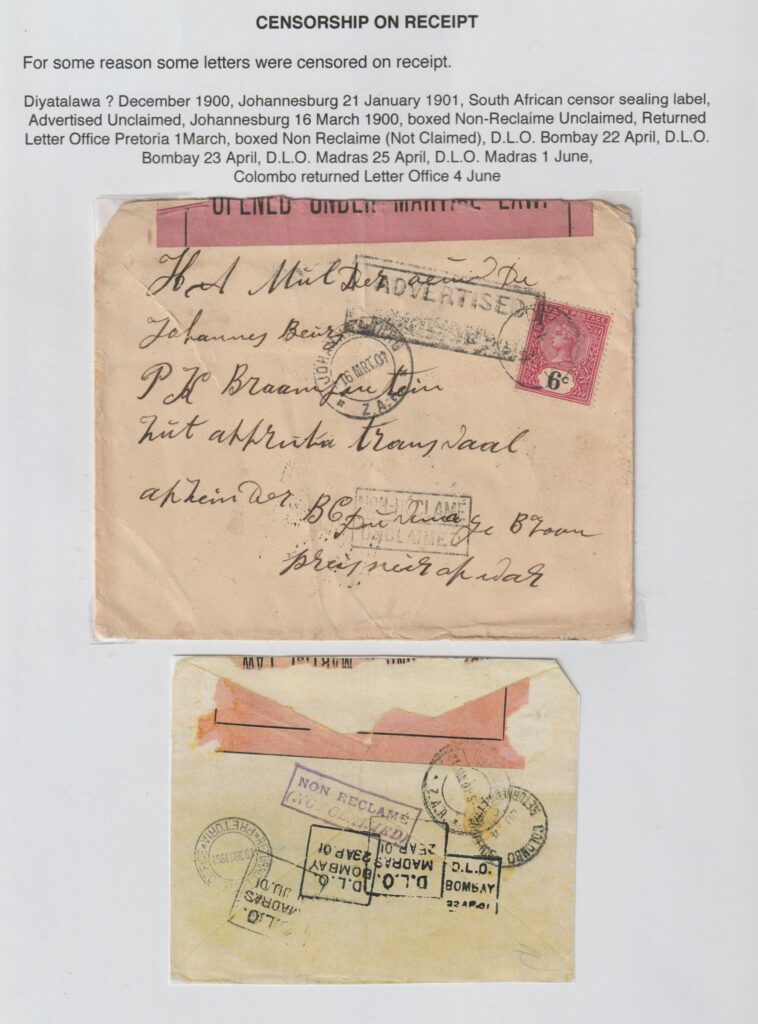 CENSORSHIP ON RECEIPT
For some reason some letters were censored on receipt.
Diyatalawa ? December 1900, Johannesburg 21 January 1901, South African censor sealing label,
Advertised Unclaimed, Johannesburg 16 March 1900, boxed Non-Reclaime Unclaimed, Returned
Letter Office Pretoria 1March, boxed Non Reclaime (Not Claimed), D.L.O. Bombay 22 April, D.L.O.
Bombay 23 April, D.L.O. Madras 25 April, D.L.O. Madras 1 June,
Colombo returned Letter Office 4 June
OPENED UNDER MARTIAL LAW.
H A Mulder
ADVERTISED
POSTAGE
6c
Johannes
16 MRT.01
Z.A.R.
P K Braamfontein
Zut affrika transvaal
afzender
NON-RECLAMÉ
UNCLAIMED
B C
MARTIAL LAW
NON RECLAMÉ
(NOT CLAIMED)
Z.A.R.
COLOMBO
PRETORIA
D.L.O.
BOMBAY
23 AP.01
D.L.O.
MADRAS
D.L.O.
BOMBAY
22 AP.01
D.L.O.
MADRAS
JU.01